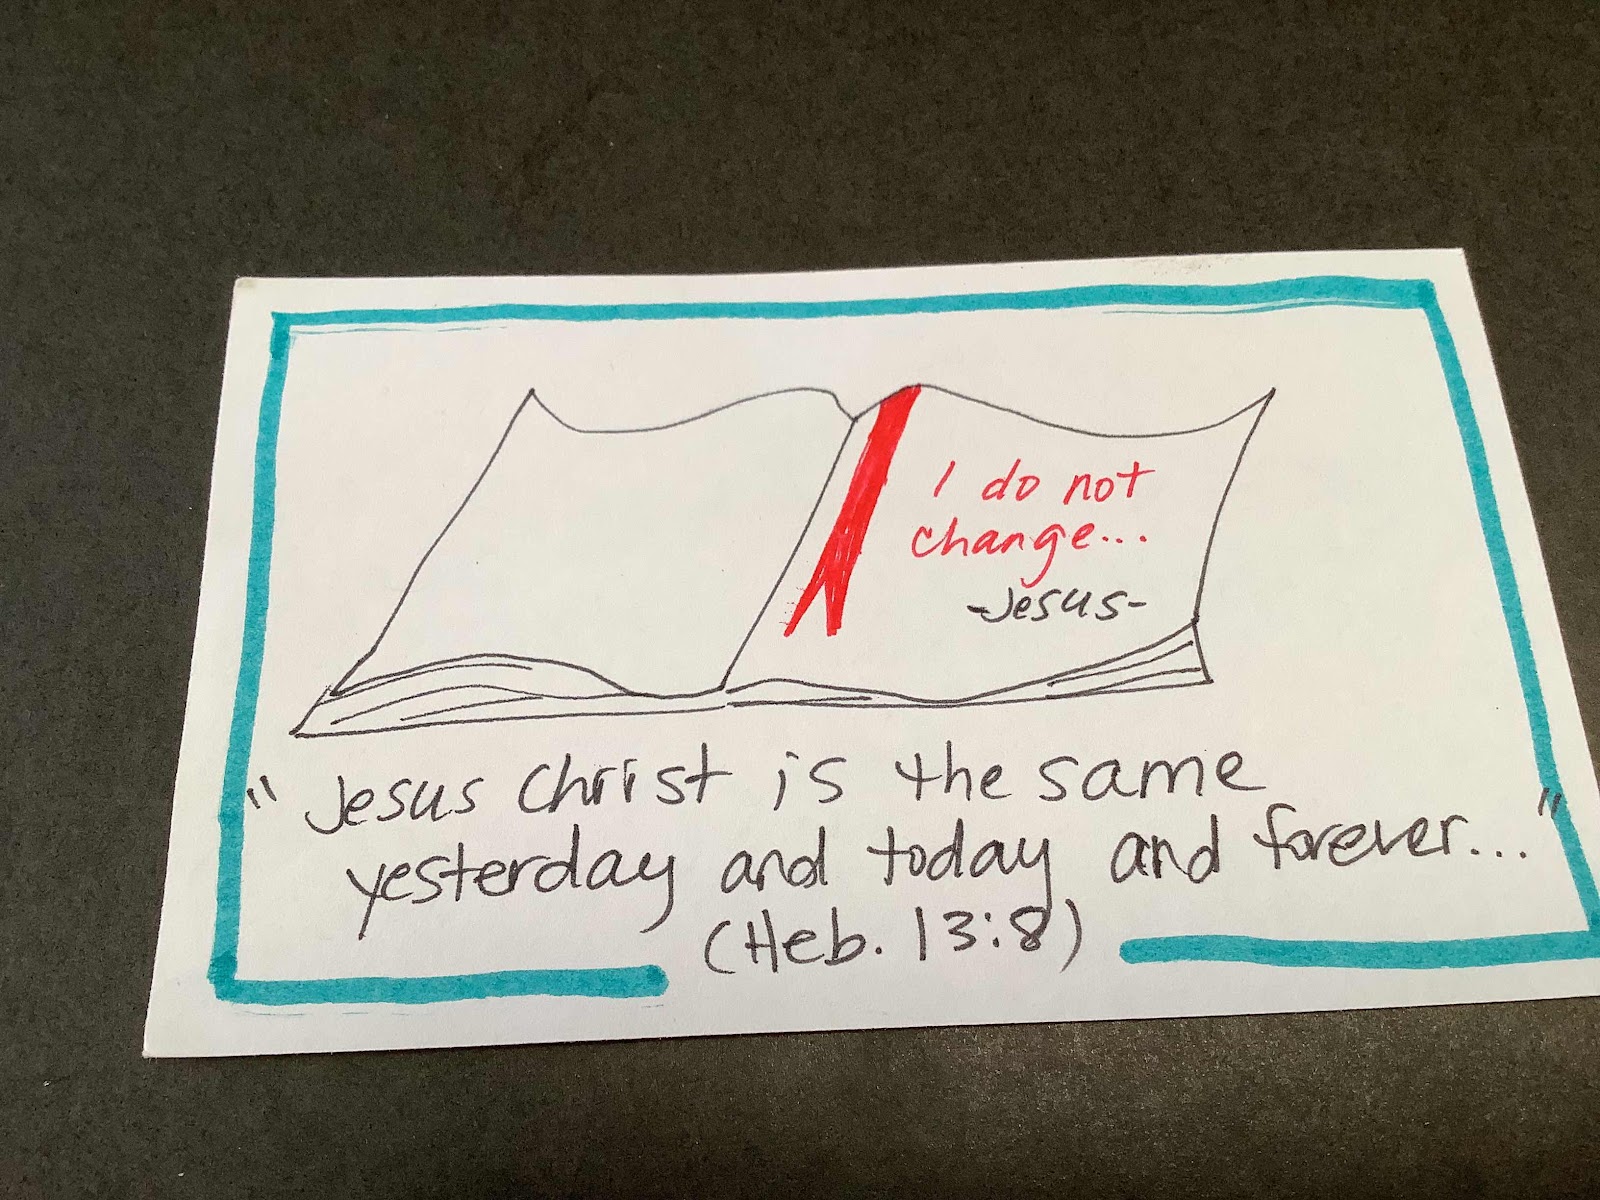 I do not
change...
-Jesus-
"Jesus Christ is the same
yesterday and today and forever..."
(Heb. 13:8)